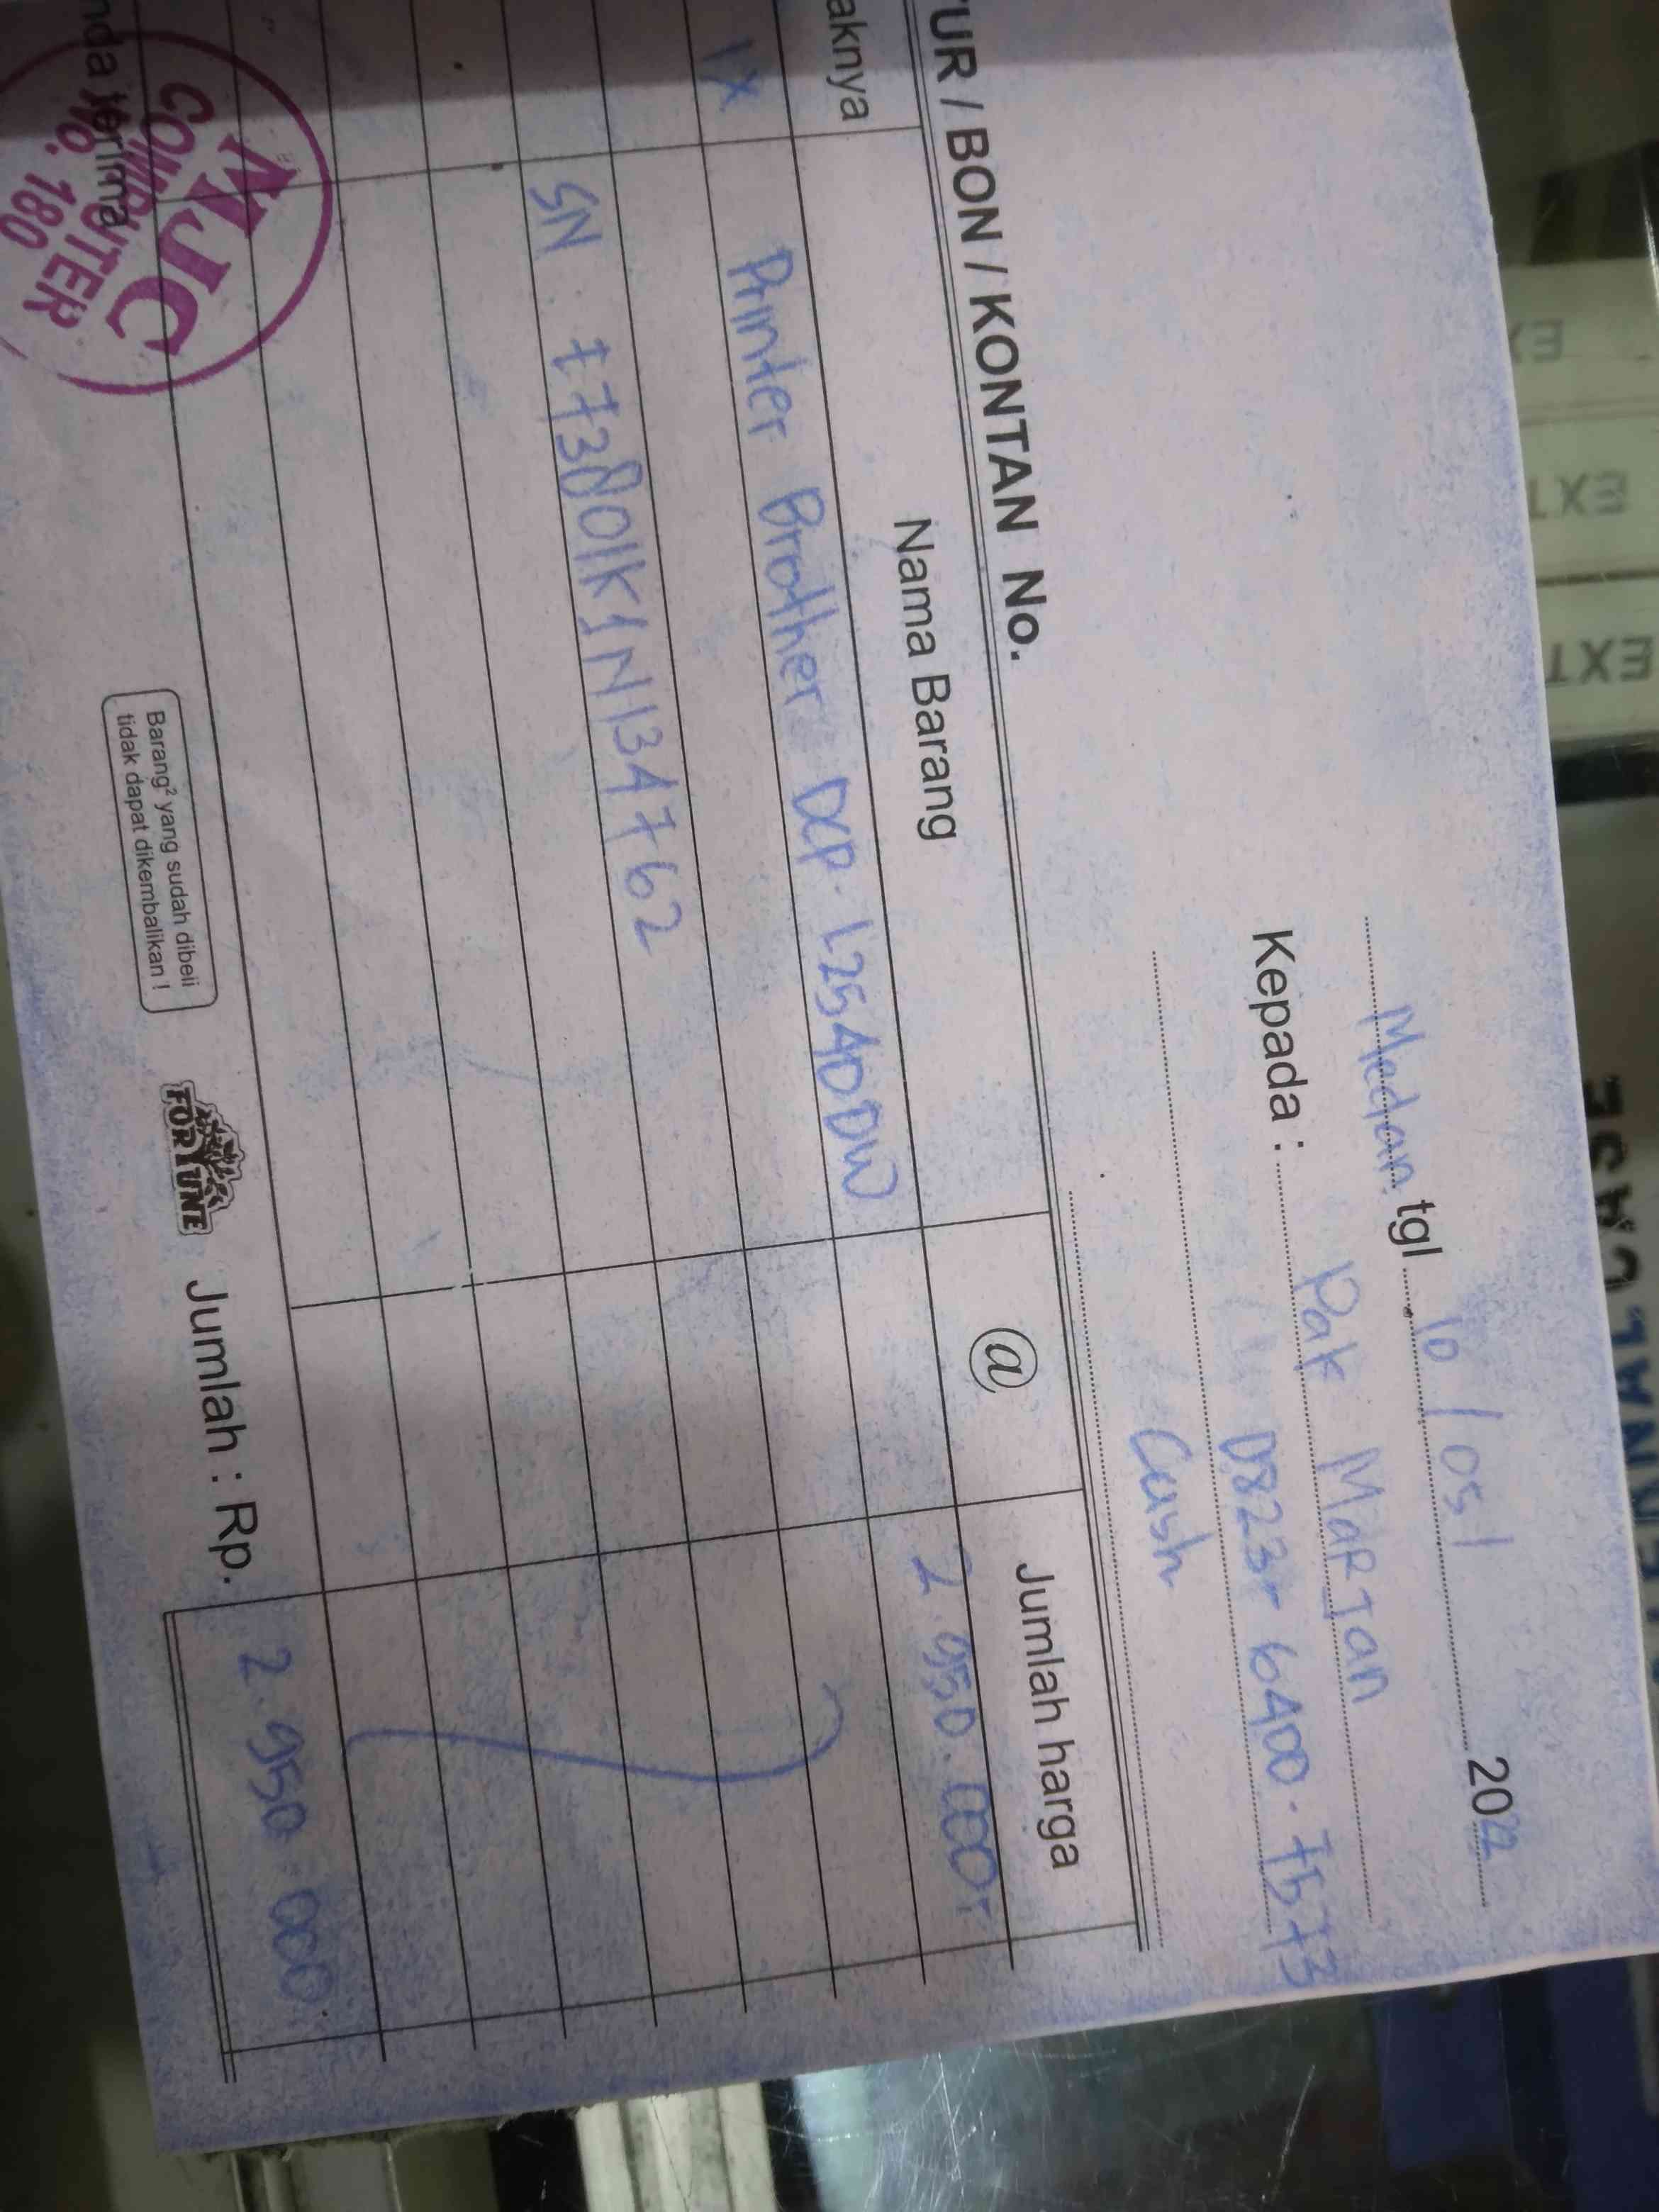 Medan, tgl. 10 / 05 / 2022
Kepada : Pak MARTAN
0823- 6400. 7573
Cash
TUR / BON / KONTAN No.
aknya Nama Barang @ Jumlah harga
1x Printer Brother DCP. L2540DW 2.950.000,-
SN : E73801K1N134762
Jumlah : Rp. 2.950.000
Barang² yang sudah dibeli
tidak dapat dikembalikan !
FORTUNE
nda terima
MJC
COMPUTER
NO. 180
EXT
EXT
CASE